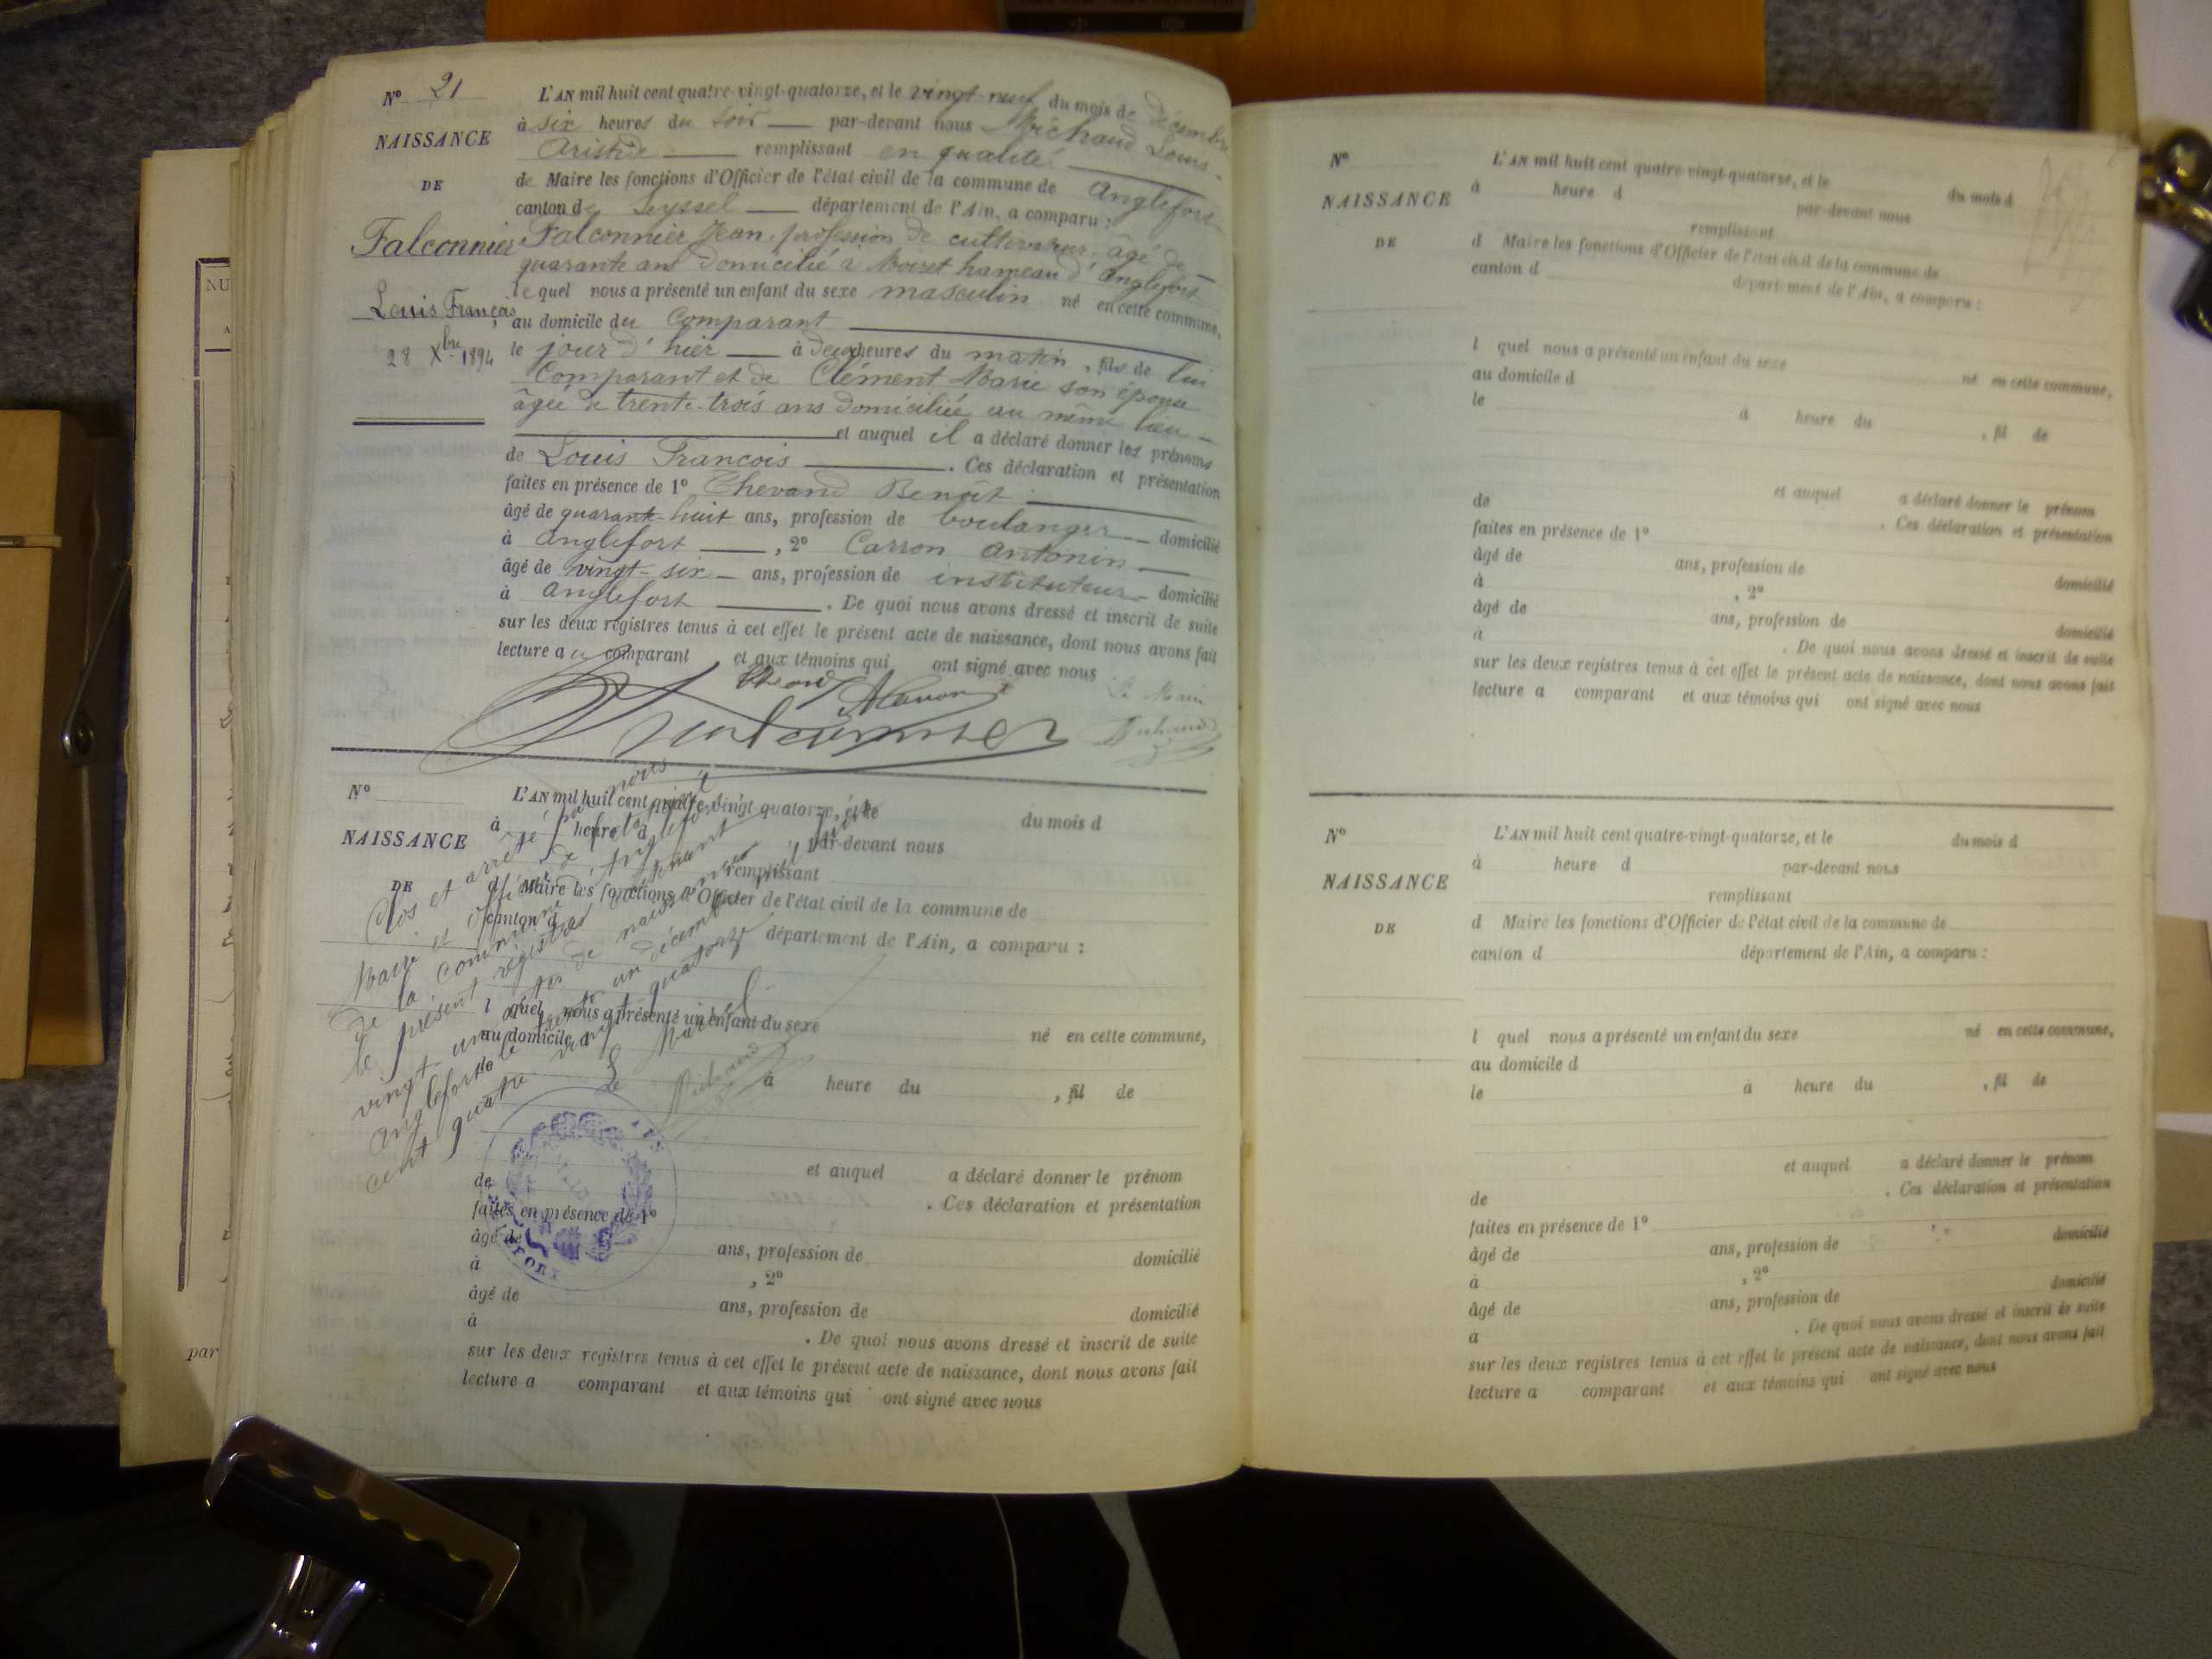 N° 21
NAISSANCE
DE
Falconnier
Louis François
28 Xbre 1894
L'AN mil huit cent quatre-vingt-quatorze, et le vingt-neuf du mois de décembre
à six heures du soir par-devant nous Michaud Louis-
Aristide remplissant en qualité
de Maire les fonctions d'Officier de l'état civil de la commune de Anglefort
canton de Seyssel département de l'Ain, a comparu :
Falconnier Jean, profession de cultivateur, âgé de
quarante ans domicilié à Boiret hameau d'Anglefort
lequel nous a présenté un enfant du sexe masculin né en cette commune,
au domicile du Comparant
le jour d'hier à deux heures du matin, fils de lui
Comparant et de Clément Marie son épouse
âgée de trente-trois ans domiciliée au même lieu
et auquel il a déclaré donner les prénoms
de Louis François . Ces déclaration et présentation
faites en présence de 1° Chevand Benoît
âgé de quarante-huit ans, profession de boulanger domicilié
à Anglefort , 2° Carron Antonin
âgé de vingt-six ans, profession de instituteur domicilié
à Anglefort . De quoi nous avons dressé et inscrit de suite
sur les deux registres tenus à cet effet le présent acte de naissance, dont nous avons fait
lecture au comparant et aux témoins qui ont signé avec nous
Le Maire
Michaud
Falconnier
N°
NAISSANCE
DE
L'AN mil huit cent quatre-vingt quatorze, et le du mois d
à heure d par-devant nous
remplissant
d Maire les fonctions d'Officier de l'état civil de la commune de
canton d département de l'Ain, a comparu :
l quel nous a présenté un enfant du sexe né en cette commune,
au domicile d
le à heure du , fil de
et auquel a déclaré donner le prénom
de . Ces déclaration et présentation
faites en présence de 1°
âgé de ans, profession de domicilié
à , 2°
âgé de ans, profession de domicilié
à . De quoi nous avons dressé et inscrit de suite
sur les deux registres tenus à cet effet le présent acte de naissance, dont nous avons fait
lecture a comparant et aux témoins qui ont signé avec nous
Clos et arrêté par nous
Maire et officier de l'état civil
de la commune d'Anglefort
le présent registre contenant
vingt-un actes de naissances
Anglefort le trente-un décembre mil huit
cent quatre vingt quatorze
Le Maire
Michaud
N°
NAISSANCE
DE
L'AN mil huit cent quatre-vingt-quatorze, et le du mois d
à heure d par-devant nous
remplissant
d Maire les fonctions d'Officier de l'état civil de la commune de
canton d département de l'Ain, a comparu :
l quel nous a présenté un enfant du sexe né en cette commune,
au domicile d
le à heure du , fil de
et auquel a déclaré donner le prénom
de . Ces déclaration et présentation
faites en présence de 1°
âgé de ans, profession de domicilié
à , 2°
âgé de ans, profession de domicilié
à . De quoi nous avons dressé et inscrit de suite
sur les deux registres tenus à cet effet le présent acte de naissance, dont nous avons fait
lecture a comparant et aux témoins qui ont signé avec nous
N°
NAISSANCE
DE
L'AN mil huit cent quatre-vingt-quatorze, et le du mois d
à heure d par-devant nous
remplissant
d Maire les fonctions d'Officier de l'état civil de la commune de
canton d département de l'Ain, a comparu :
l quel nous a présenté un enfant du sexe né en cette commune,
au domicile d
le à heure du , fil de
et auquel a déclaré donner le prénom
de . Ces déclaration et présentation
faites en présence de 1°
âgé de ans, profession de domicilié
à , 2°
âgé de ans, profession de domicilié
a . De quoi nous avons dressé et inscrit de suite
sur les deux registres tenus à cet effet le présent acte de naissance, dont nous avons fait
lecture a comparant et aux témoins qui ont signé avec nous
par